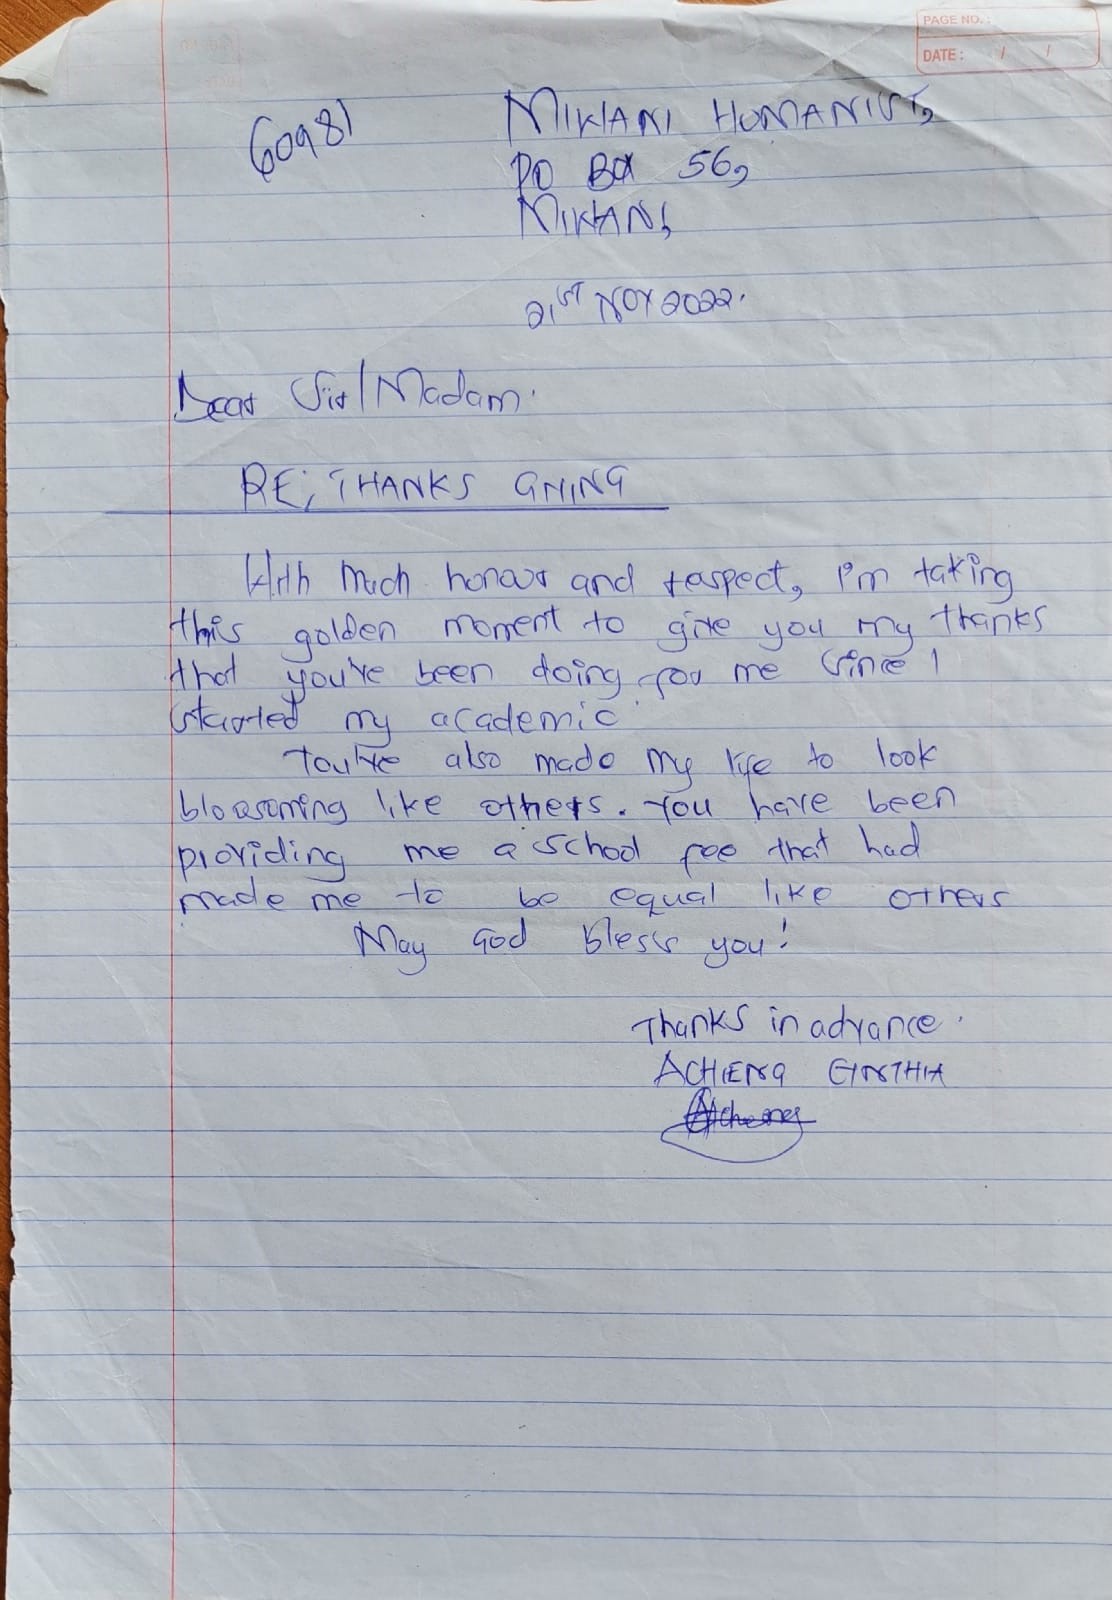 PAGE NO. :
DATE : / /
60981
MIKIANI HUMANIST,
PO BOX 56,
MIKIANI,
21ST NOV 2022.
Dear Sir/Madam.
RE; THANKS GIVING
With much honour and respect, I'm taking
this golden moment to give you my thanks
that you've been doing for me since I
started my academic.
You've also made my life to look
blossoming like others. You have been
providing me a school fee that had
made me to be equal like others
May God bless you!
Thanks in advance.
ACHIENG CINTHIA